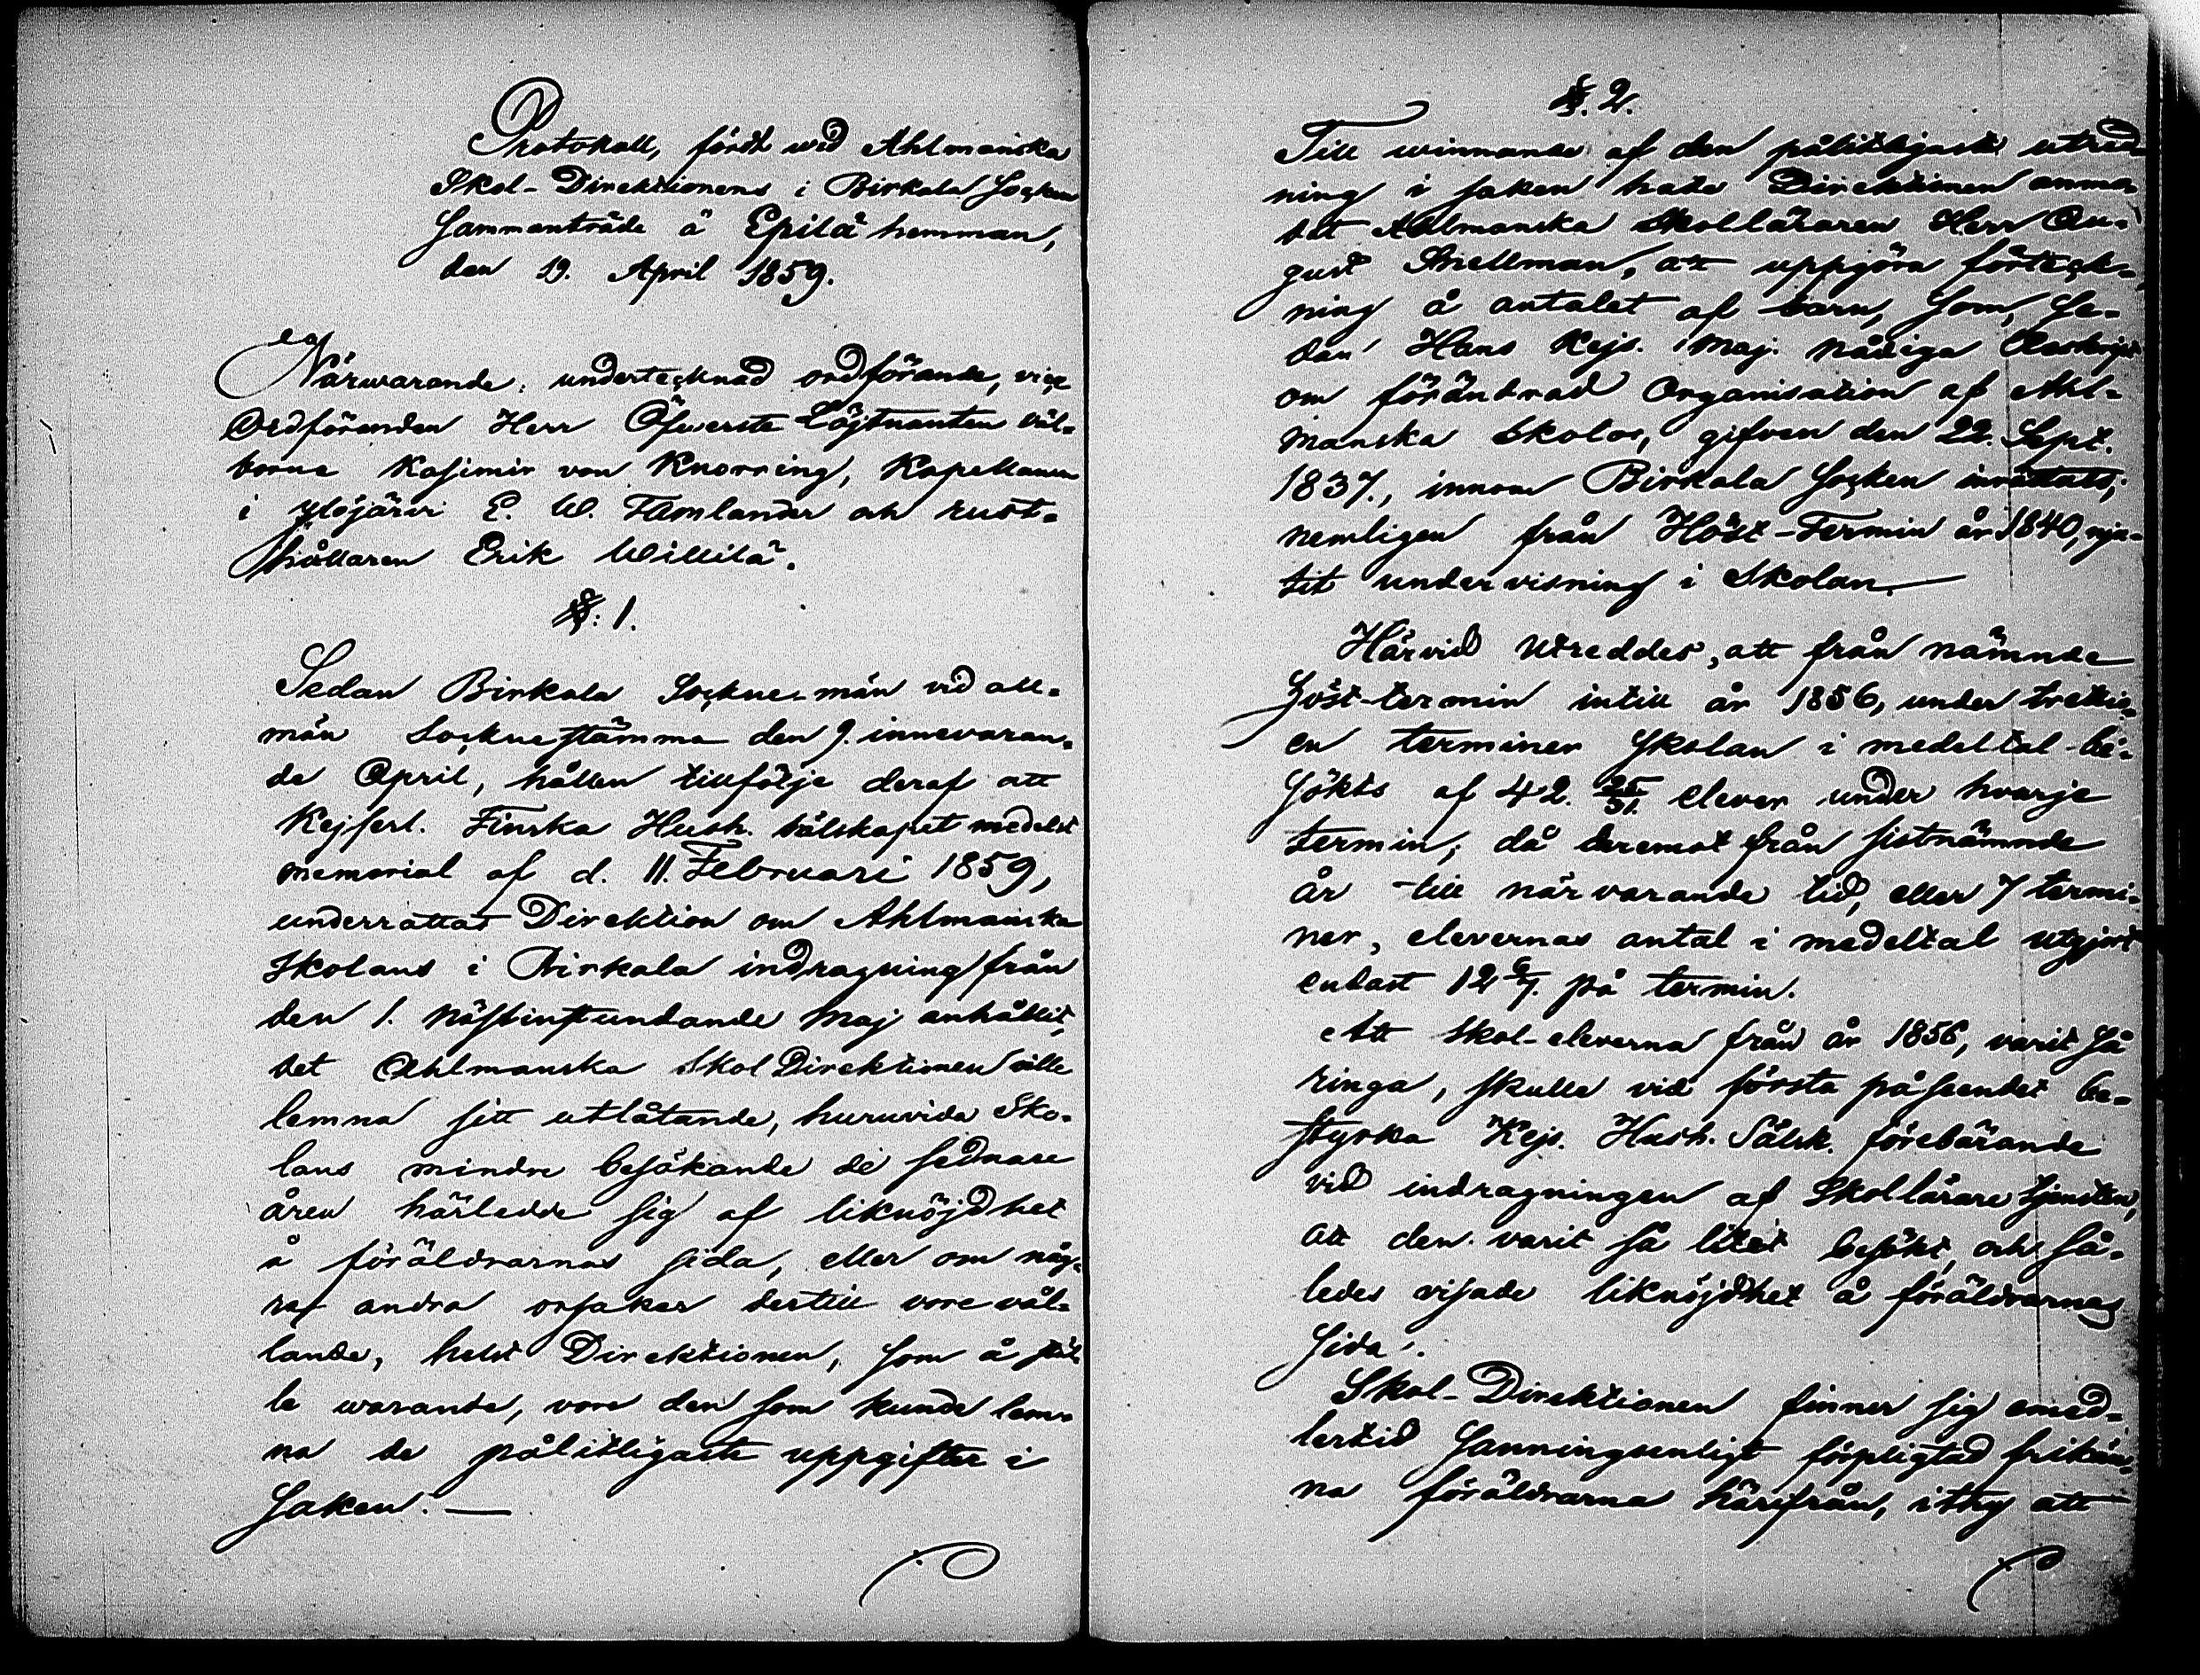 Protokoll, fördt wid Ahlmanska
Skol-Direktionens i Birkala Socken
Sammanträde å Epilä hemman,
den 19. April 1859.
Närwarande: undertecknad ordförande, vice
Ordföranden Herr Öfwerste Löjtnanten väl-
borne Kasimir von Knorring, Kapellanen
i Ylöjärvi E. W. Tamlander och rust-
hållaren Erik Willilä.
§: 1.
Sedan Birkala Sockne-män vid all-
män Socknestämma den 9. innevaran-
de April, hållen tillfölje deraf att
Kejserl. Finska Hush. sälskapet medelst
memorial af d. 11. Februari 1859,
underrättat Direktion om Ahlmanska
Skolans i Birkala indragning från
den 1. nästinstundande Maj anhållit,
det Ahlmanska Skol Direktionen ville
lemna sitt utlåtande, huruvida Sko-
lans mindre besökande de sednare
åren härledde sig af liknöjdhet
å föräldrarnas sida, eller om någ-
ra andra orsaker dertill vore vål-
lande, helst Direktionen, som å stäl-
le warande, vore den som kunde lem-
na de pålitligaste uppgifter i
saken. —
§. 2.
Till winnande af den pålitligaste utred-
ning i saken hade Direktionen anmo-
dat Ahlmanska Skolläraren Herr Au-
gust Snellman, att uppgöra förteck-
ning å antalet af barn, som, se-
dan Hans Kejs. Maj. nådiga
om förändrad Organisation af Ahl-
manska Skolor, gifven den 22. Sept.
1837., innom Birkala Socken inrättats,
nemligen från Höst-Termin år 1840, nju-
tit undervisning i Skolan. —
Härvid utreddes, att från nämnde
höst-termin intill år 1856, under trettio-
en terminer Skolan i medeltal be-
sökts af 42. 25/31. elever under hvarje
termin; då deremot från sistnämnde
år till närvarande tid, eller 7 termi-
ner, elevernas antal i medeltal utgjort
endast 12 6/7. på termin.
Att skol-eleverna från år 1856, varit så
ringa, skulle vid första påseendet be-
styrka Kejs. Hush. Sälsk. förebärande
vid indragningen af Skollärare tjensten,
att den varit så litet besökt, och så-
ledes visade liknöjdhet å föräldrarnas
sida.
Skol-Direktionen finner sig emed-
lertid sanningsenligt förpligtad frikän-
na föräldrarna härifrån, ithy att